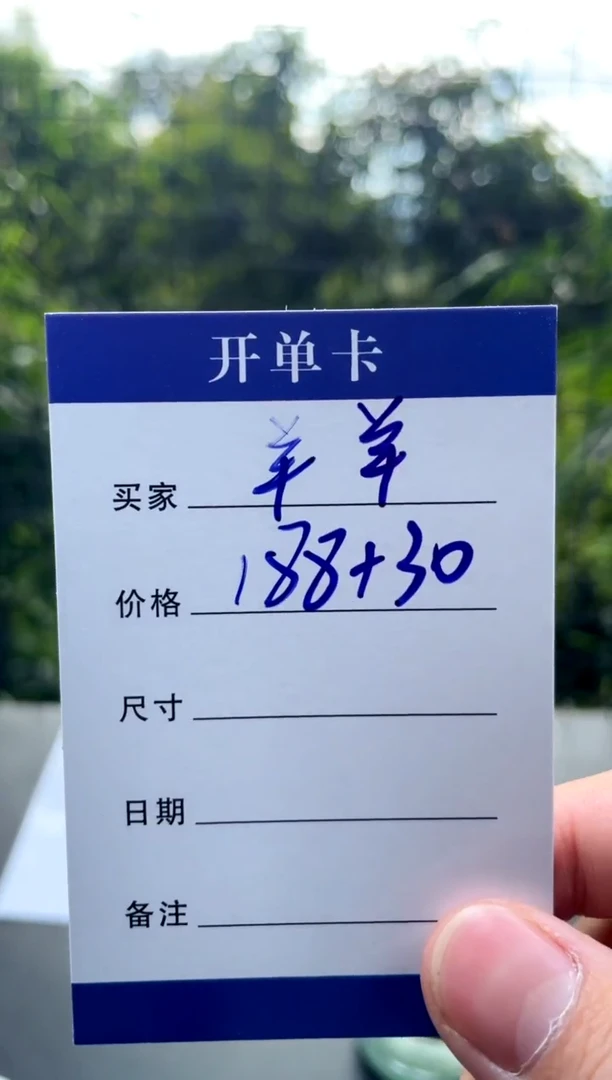 开单卡
买家 羊羊
价格 188+30
尺寸
日期
备注